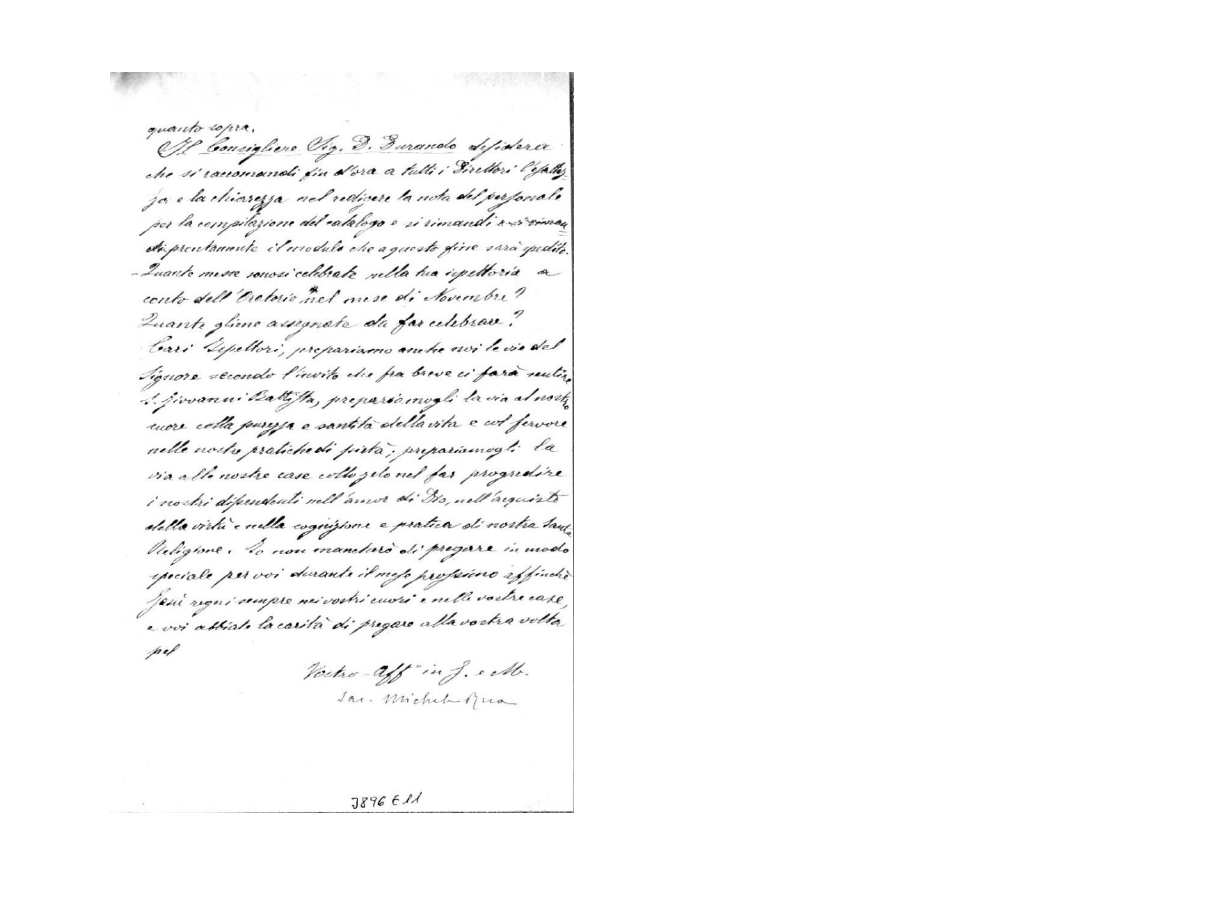 quanto sopra.
Il Consigliere Sig. D. Durando desidera
che si raccomandi fin d'ora a tutti i Direttori l'esattez-
za e la chiarezza nel redigere la nota del personale
per la compilazione del catalogo e si rimandi e si riman
di prontamente il modulo che a questo fine sarà spedito.
- Quante messe sonosi celebrate nella tua ispettoria a
conto dell'Oratorio nel mese di Novembre?
Quante gliene assegnate da far celebrare?
Cari Ispettori, prepariamo anche noi le vie del
Signore secondo l'invito che fra breve ci farà sentire
S. Giovanni Battista, prepariamogli la via al nostro
cuore colla purezza e santità della vita e col fervore
nelle nostre pratiche di pietà; prepariamogli la
via alle nostre case collo zelo nel far progredire
i nostri dipendenti nell'amor di Dio, nell'acquisto
della virtù e nella cognizione e pratica di nostra Santa
Religione. Io non mancherò di pregare in modo
speciale per voi durante il mese prossimo affinchè
Gesù regni sempre nei vostri cuori e nelle vostre case,
e voi abbiate la carità di pregare alla vostra volta
pel
Vostro Aff.º in G. e M.
Sac. Michele Rua
3896 E11